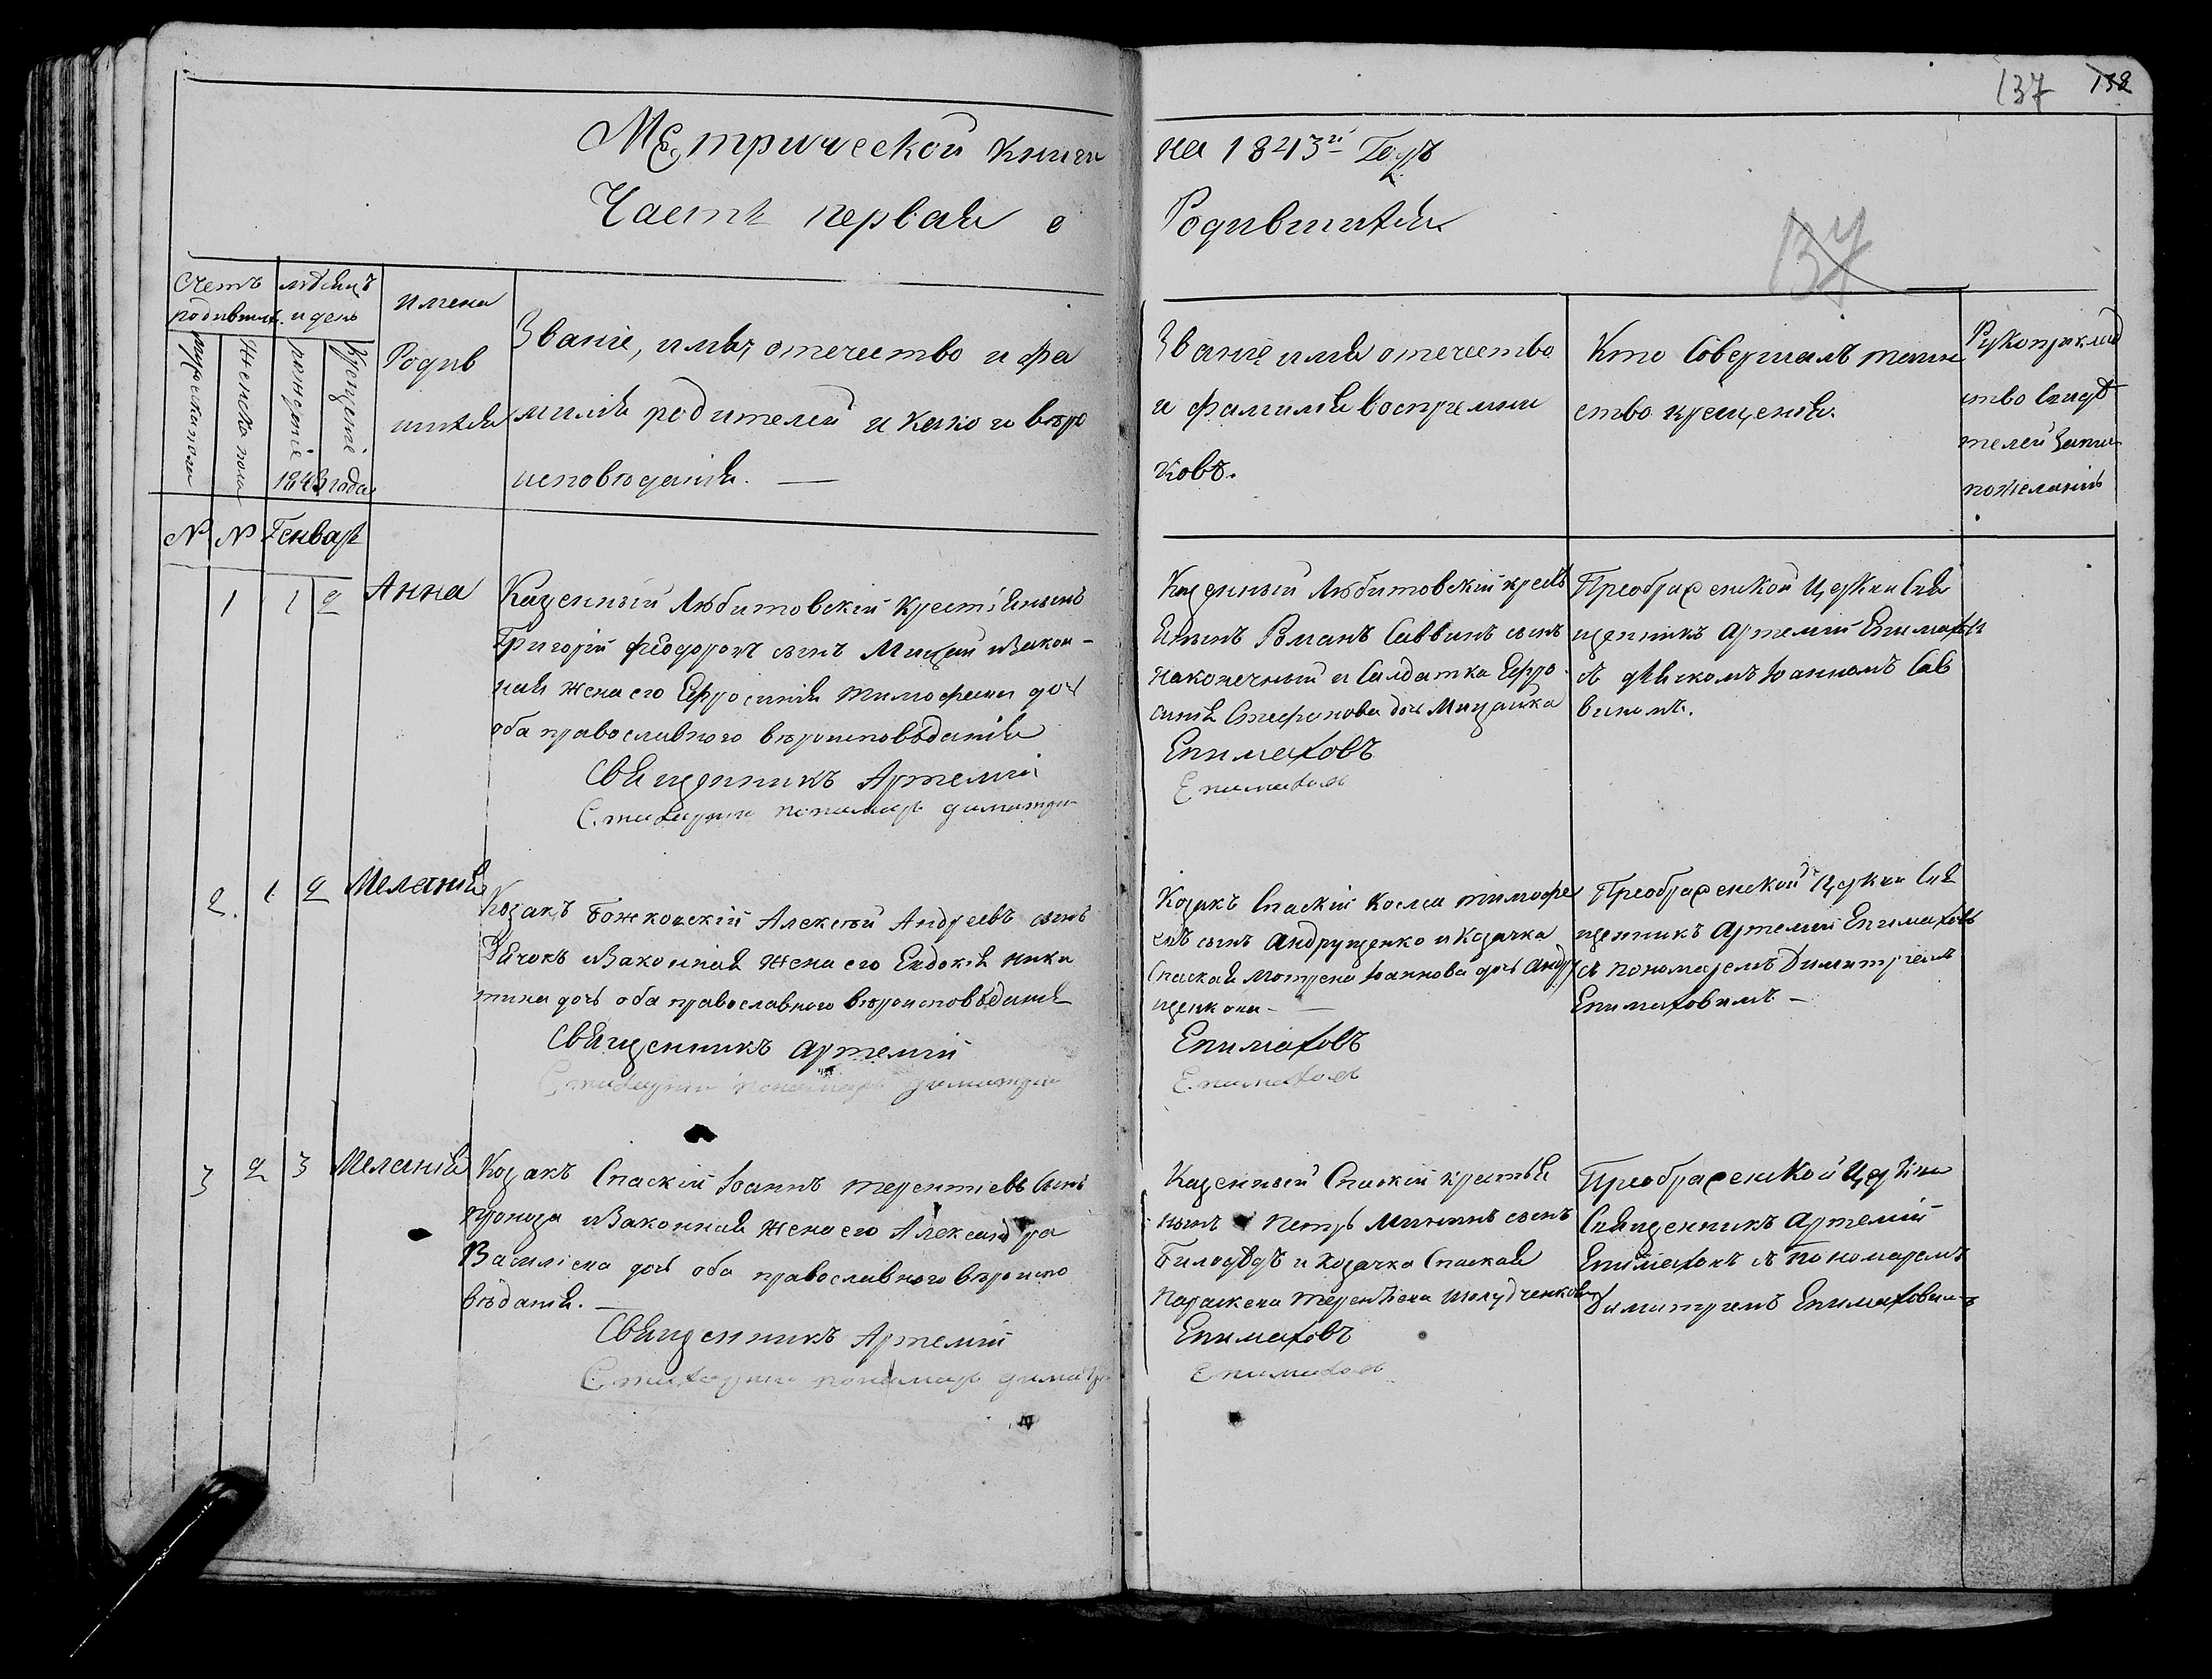 137 138
Метрической книги на 1843й Годъ
Часть первая о Родившихся
137
Счетъ родивших.
мѣсяцъ и день
имена Родившихся
Званіе, имя, отечество и фамилія родителей и какого вѣроисповѣданія. —
Званіе имя отечество и фамилія воспріемниковъ.
Кто Совершалъ таинство крещенія.
Рукоприкладство свидѣтелей записи по желанію
мужеска пола
Женска пола
рожденіе
крещеніе
1843 года
№ № Генварь
1 1 2 Анна
Казенный Любитовскій крестіянинъ
Григорій Феодоровъ сынъ Мицай и Закон-
ная жена его Ефросинія Тимофеева дочь
оба православного вѣроисповѣданія
Священникъ Артемій
Стихарный пономарь Димитрій
Казенный Любитовскій кресть
янинъ Романъ Саввинъ сынъ
Наконечный и Салдатка Ефро
синія Стефанова дочь Мицайка
Епимаховъ
Епимаховъ
Преображенской Церкви Свя
щенникъ Артемій Епимаховъ
съ дячкомъ Іоанномъ Сав
винымъ.
2. 1 2 Меланія
Козакъ Божковскій Алексѣй Андреевъ сынъ
Заичокъ и Законная жена его Евдокія Ники
тина дочь оба православного вѣроисповѣданія
Священникъ Артемій
Стихарный пономарь Димитрій
Козакъ Спаскій Косма Тимофе
евъ сынъ Андрущенко и Козачка
Спаская Мотрена Іоаннова дочь Андру
щенкова —
Епимаховъ
Епимаховъ
Преображенской Церкви Свя
щенникъ Артемій Епимаховъ
съ пономаремъ Димитріемъ
Епимаховимъ —
3 2 3 Меланія
Козакъ Спаскій Іоаннъ Терентіевъ Сынъ
Проноза и Законная жена его Александра
Василіева дочь оба православного вѣроиспо
вѣданія. —
Священникъ Артемій
Стихарный пономарь Димитрій
Казенный Спаскій крестья
нинъ Петръ Мининъ сынъ
Билодѣдъ и Козачка Спаская
Параскева Терентіева Шолудченкова
Епимаховъ
Епимаховъ
Преображенской Церкви
Священникъ Артемій
Епимаховъ съ пономаремъ
Димитріемъ Епимаховимъ